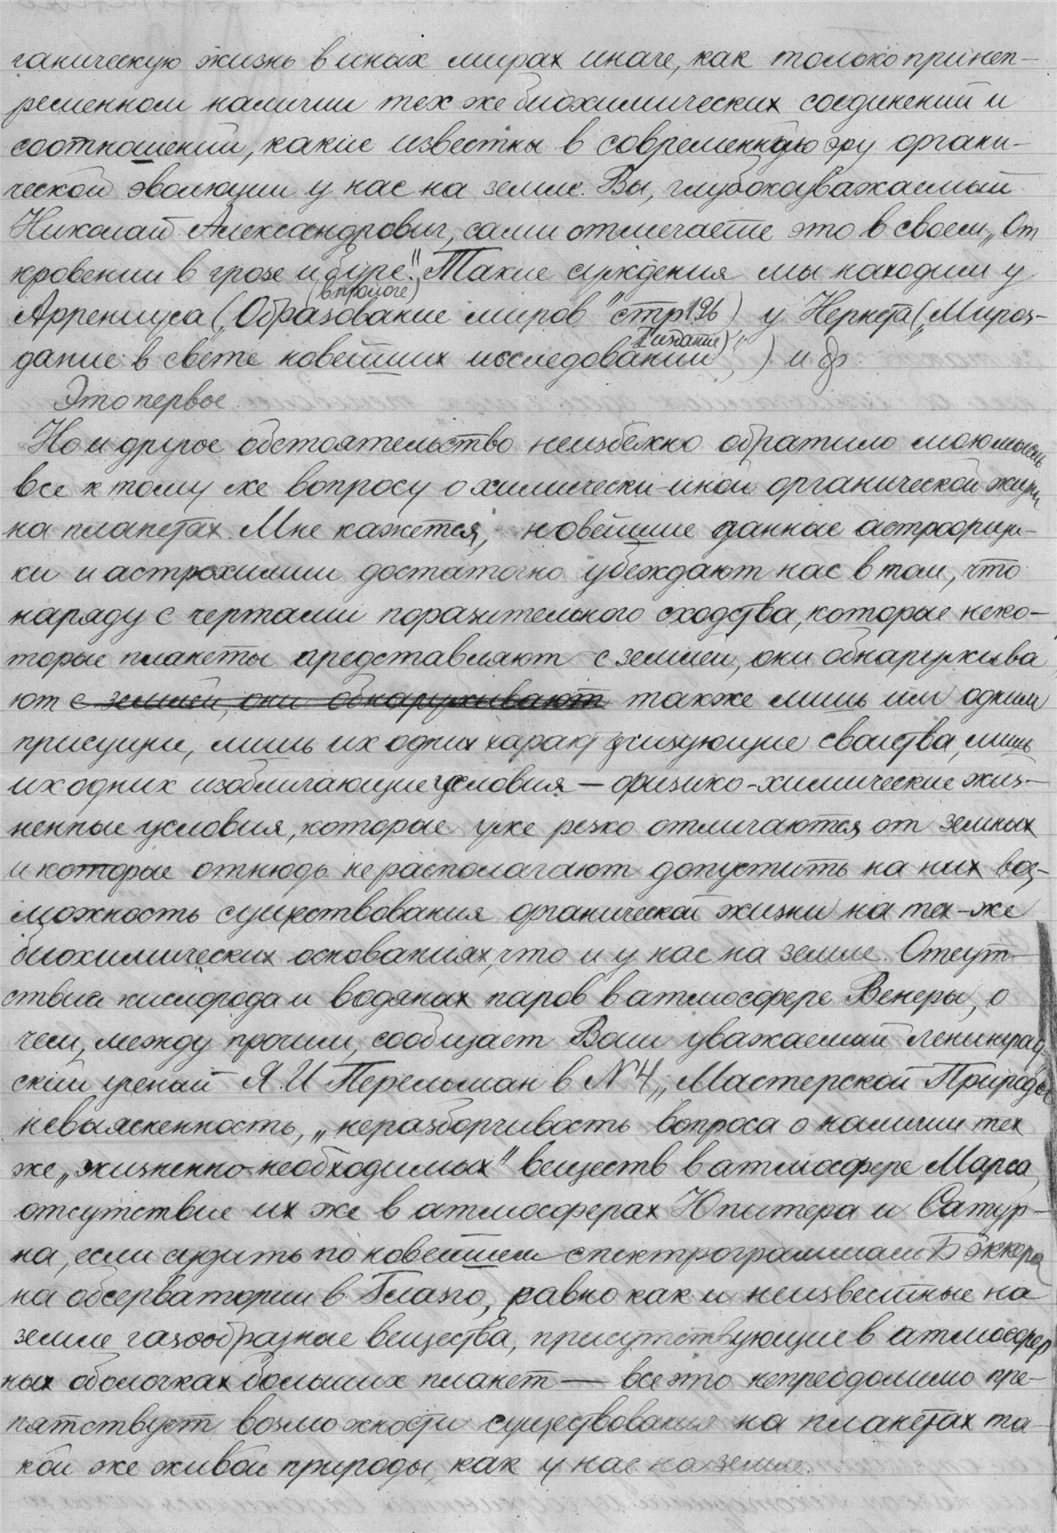 ганическую жизнь в иных мирах иначе, как только при неп-
ременном наличии тех же биохимических соединений и
соотношений, какие известны в современную эру органи-
ческой эволюции у нас на земле. Вы, глубокоуважаемый
Николай Александрович, сами отмечаете это в своем „От
кровении в грозе и буре". Такие суждения мы находим у
(в прологе)
Аррениуса („Образование миров" стр 196) у Нернста („Мироз-
1 издание)
дание в свете новейших исследований") и др
Это первое.
Но и другое обстоятельство неизбежно обратило мою мысль
все к тому же вопросу о химически-иной органической жизни
на планетах. Мне кажется, новейшие данные астрофизи-
ки и астрохимии достаточно убеждают нас в том, что
наряду с чертами поразительного сходства, которые неко-
торые планеты представляют с землей, они обнаружива
ют с землей, они обнаруживают также лишь им одним
присущие, лишь их одних характеризующие свойства, лишь
их одних изобличающие условия — физико-химические жиз-
ненные условия, которые уже резко отличаются от земных
и которые отнюдь не располагают допустить на них воз-
можность существования органической жизни на тех-же
биохимических основаниях, что и у нас на земле. Отсут-
ствие кислорода и водяных паров в атмосфере Венеры, о
чем, между прочим, сообщает Ваш уважаемый ленинград-
ский ученый Я. И Перельман в №4 „Мастерской Природы
невыясненность, „неразборчивость вопроса о наличии тех
же „жизненно-необходимых" веществ в атмосфере Марса,
отсутствие их же в атмосферах Юпитера и Сатур-
на, если судить по новейшем спектрограммам Бэккера
на обсерватории в Глазго, равно как и неизвестные на
земле газообразные вещества, присутствующие в атмосфер
ных оболочках больших планет — все это непреодолимо пре-
пятствует возможности существования на планетах та-
кой же живой природы, как у нас на земле.